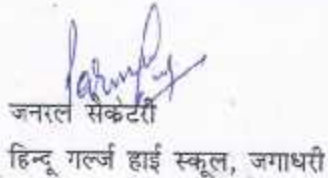 जनरल सैकेटरी
हिन्दू गर्ल्ज हाई स्कूल, जगाधरी